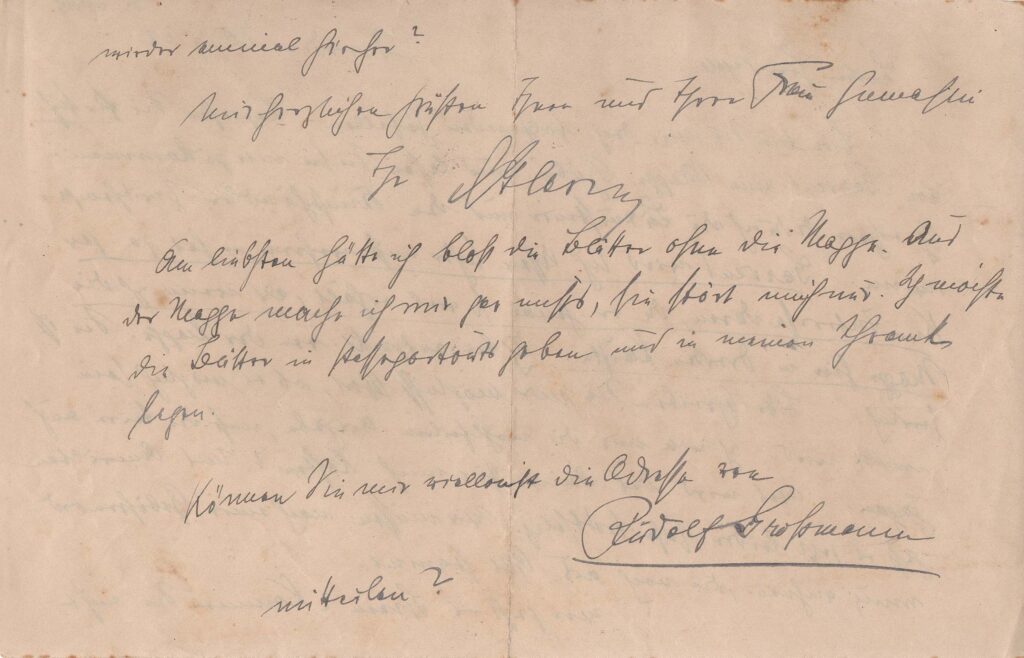 wieder einmal hierher?
Mit herzlichen Grüßen Ihnen und Ihrer Frau Gemahlin
Ihr
Am liebsten hätte ich bloß die Blätter ohne die Mappe. Aus
der Mappe mache ich mir gar nichts, sie stört mich nur. Ich möchte
die Blätter in Passepartouts geben und in meinen Schrank
legen.
Können Sie mir vielleicht die Adresse von
Rudolf Großmann
mitteilen?